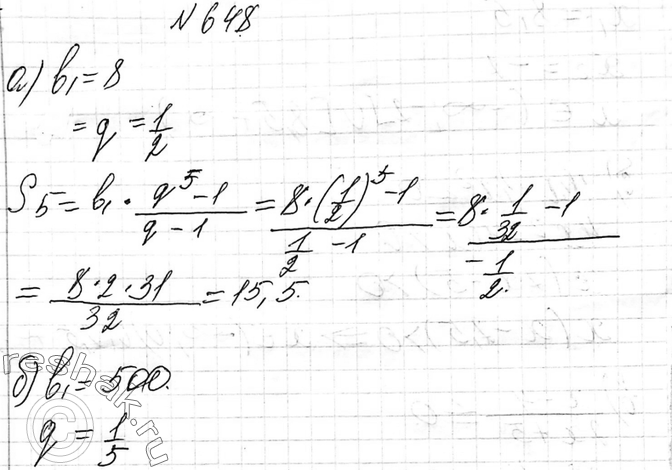 N 648
а) b₁ = 8
= q = 1/2
S₅ = b₁ · (q⁵ - 1)/(q - 1) = (8 · (1/2)⁵ - 1)/(1/2 - 1) = (8 · 1/32 - 1)/(-1/2)
= (8 · 2 · 31)/32 = 15,5.
б) b₁ = 500.
q = 1/5
reshak.ru